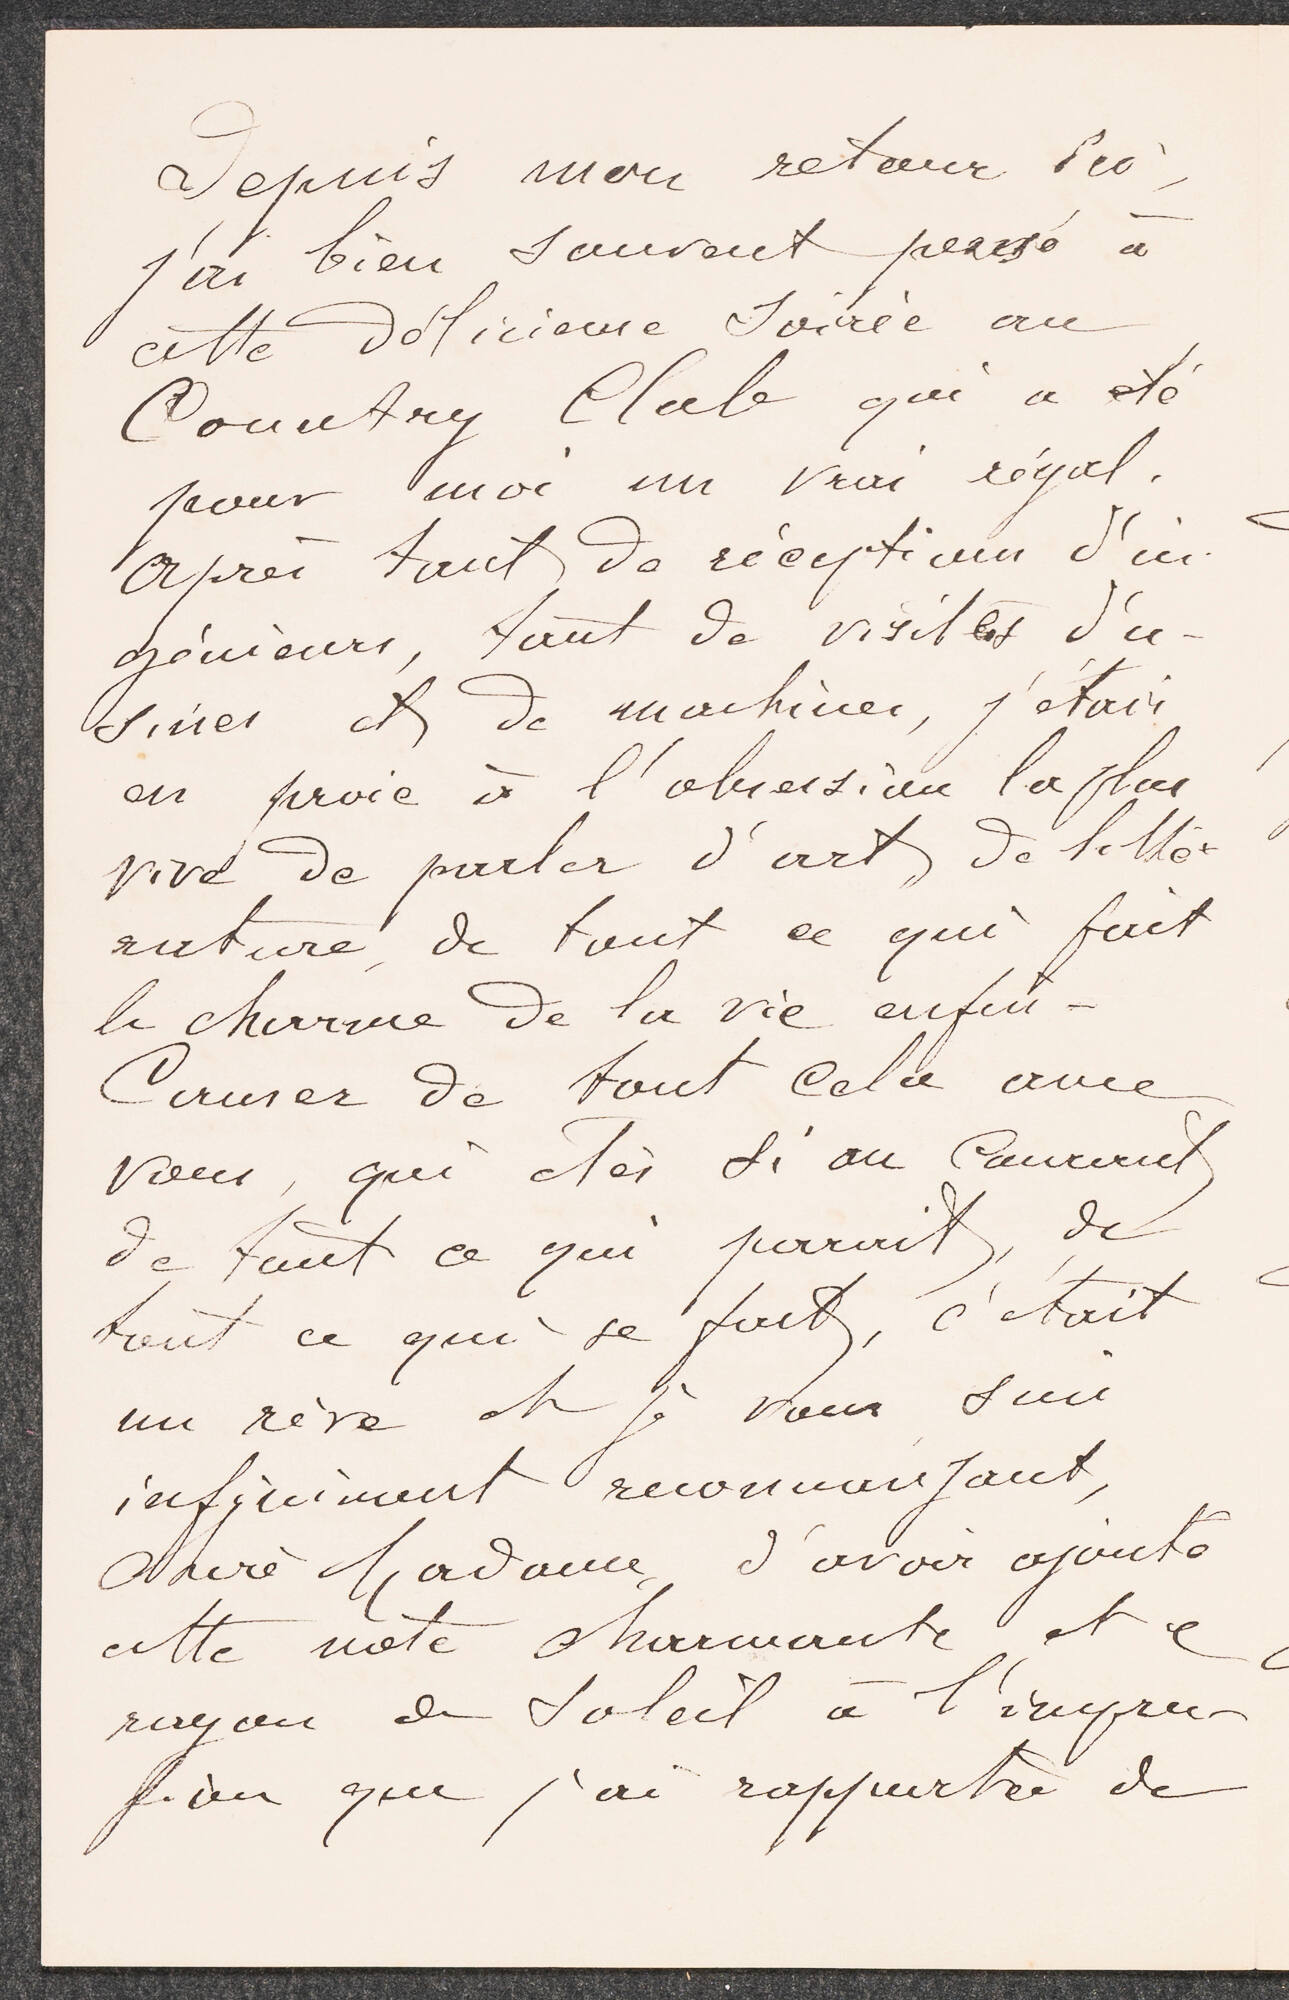 Depuis mon retour ici,
j'ai bien souvent pensé à
cette délicieuse soirée au
Country Club qui a été
pour moi un vrai régal.
Après tant de réceptions d'in-
génieurs, tant de visites d'u-
sines et de machines, j'étais
en proie à l'obsession la plus
vive de parler d'art, de litté-
rature, de tout ce qui fait
le charme de la vie enfin -
Causer de tout cela avec
vous, qui êtes si au courant
de tout ce qui parait, de
tout ce qui se fait, c'était
un rêve et je vous suis
infiniment reconnaissant,
chère Madame, d'avoir ajouté
cette note charmante et ce
rayon de soleil à l'impres-
sion que j'ai rapportée de